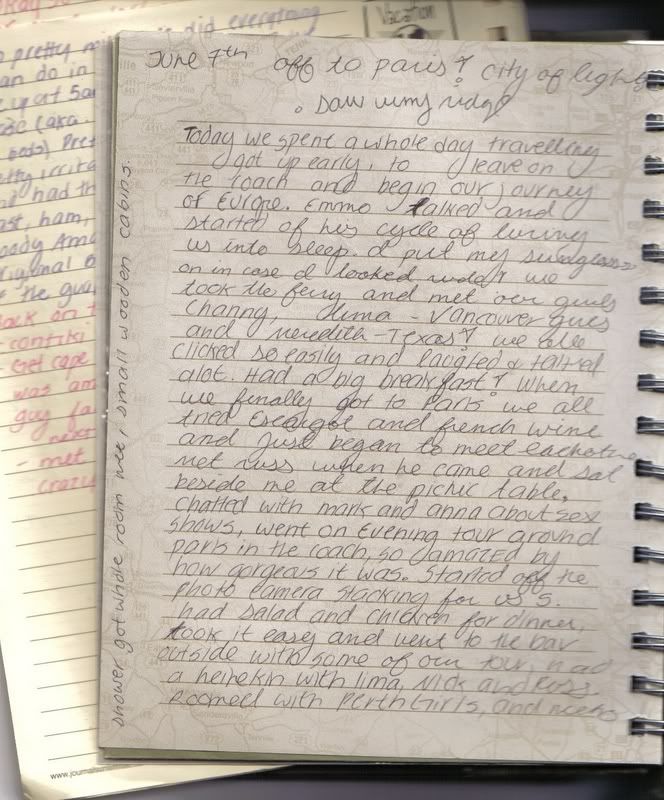 June 7th off to paris! City of lights
Today we spent a whole day travelling
got up early, to leave on
the coach and begin our journey
of Europe. Emmo talked and
started of his cycle of luring
us into sleep. I put my sunglasses
on in case I looked we
took the ferry and met our girls
Channy, - Vancouver girls
and Meredith - Texas! we all
clicked so easily and laughed & talked
alot. Had a big breakfast! When
we finally got to Paris we all
tried Escargot and french wine
and just began to meet eachother
met russ when he came and sat
beside me at the picnic table.
chatted with mark and anna about sex
shows, went on Evening tour around
paris in the coach, so amazed by
how gorgeous it was. Started off the
photo camera stacking for us 5.
had salad and chicken for dinner,
took it easy and went to the bar
outside with some of our tour, had
a heinekin with lima, Nick and Ross.
Roomed with Perth Girls, and
shower got whole room wet, small wooden cabins.
Vacation
o pretty did everything
an do in
(aka.
Pret
had th
ast, ham,
riginal
the gu
back on t
- contiki
- Get cape
was am
guy fa
never
- met
crazy
www.journals